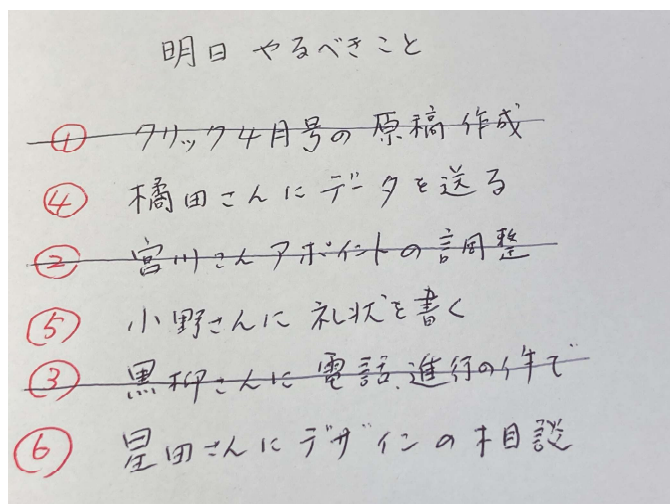 明日 やるべきこと
① クリック4月号の原稿作成
④ 橘田さんにデータを送る
② 宮川さんアポイントの調整
⑤ 小野さんに礼状を書く
③ 黒柳さんに電話、進行の件で
⑥ 星田さんにデザインの相談